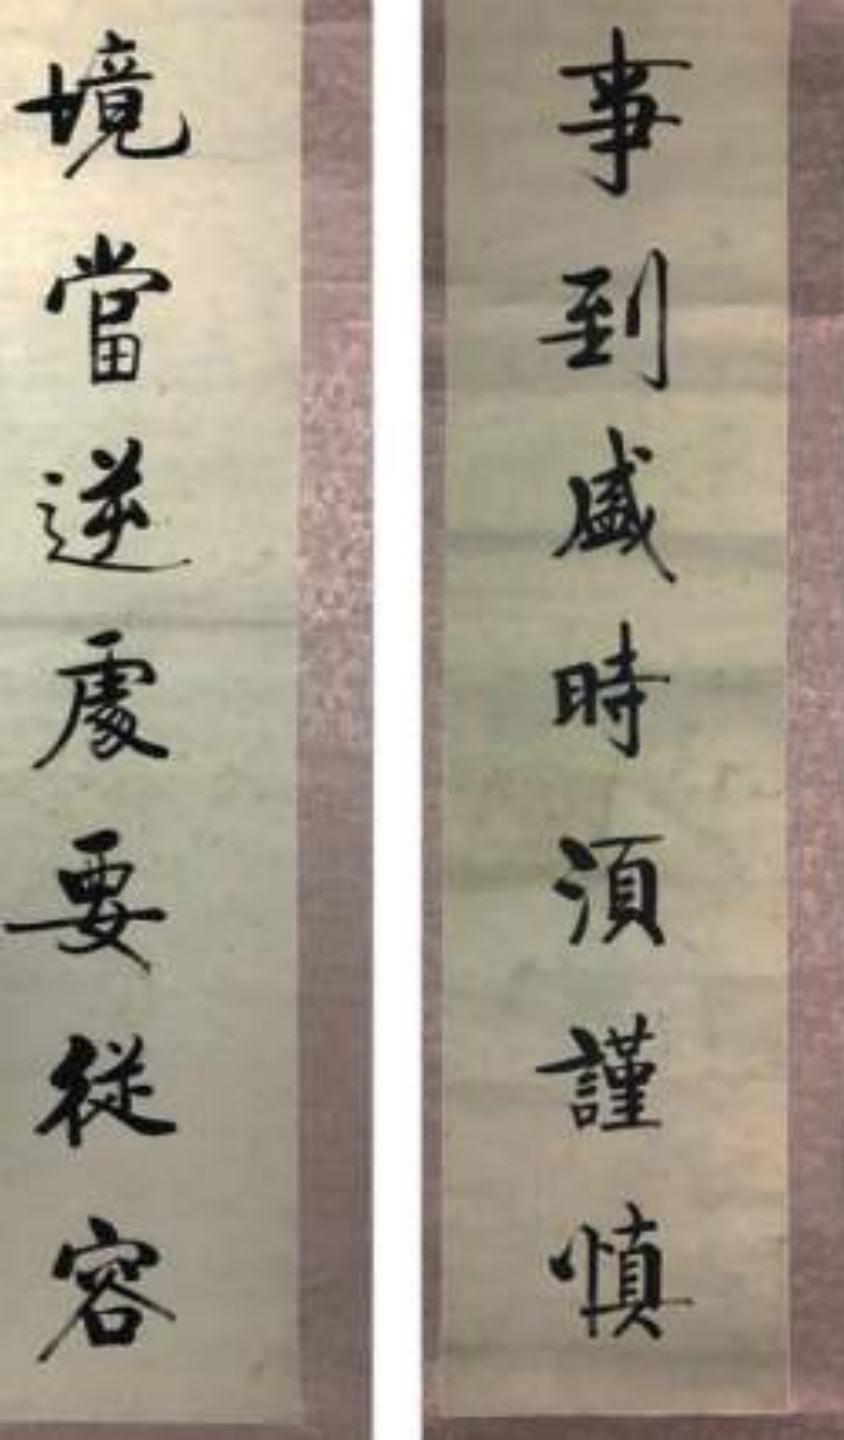 事到盛時須謹慎
境當逆處要從容